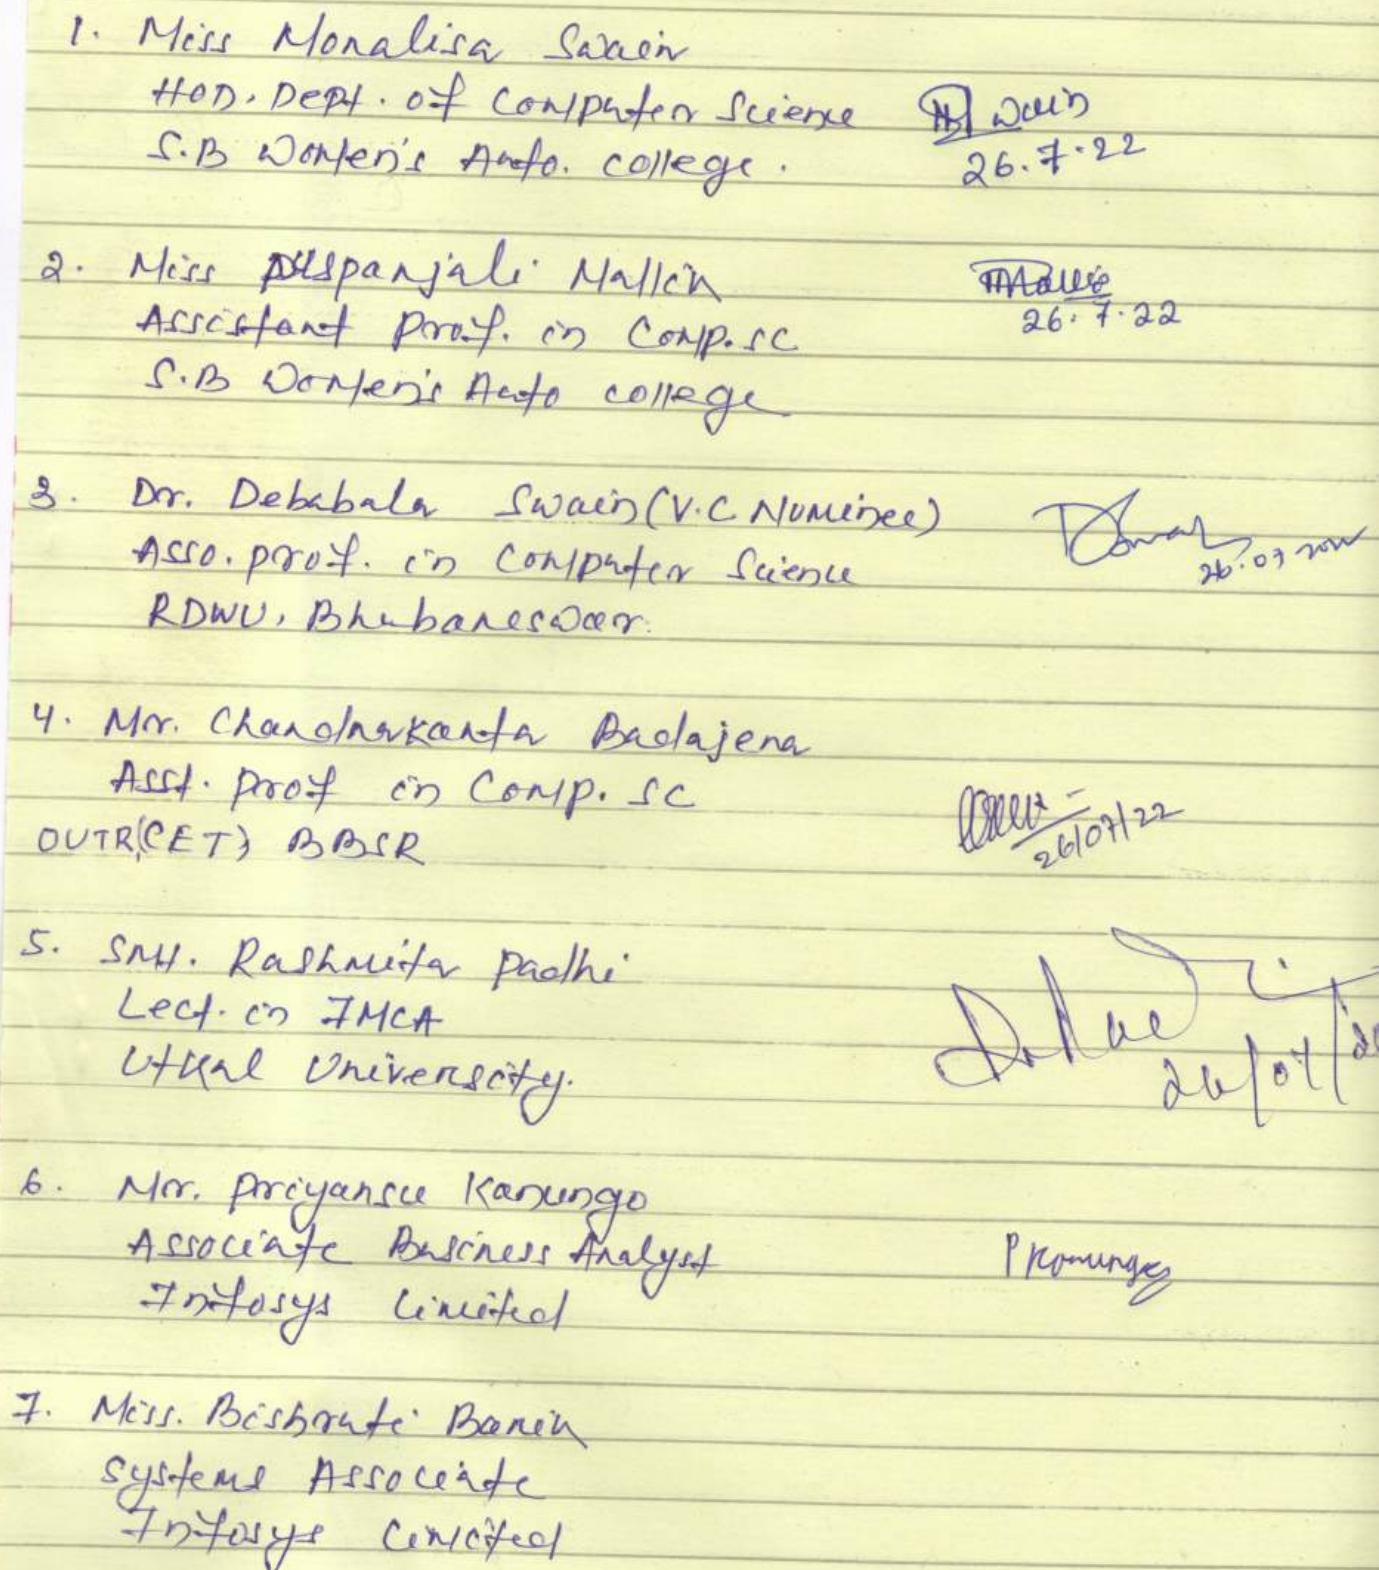 1. Miss Monalisa Swain
HOD. Dept. of Computer Science
S.B Women's Auto. college.
26.7.22
2. Miss Puspanjali Mallick
Assistant Prof. in Comp.sc
S.B Women's Auto college
26.7.22
3. Dr. Debabala Swain (V.C Nominee)
Asso. prof. in Computer Science
RDWU, Bhubaneswar.
4. Mr. Chandrakanta Badajena
Asst. Prof in Comp. SC
OUTR(CET) BBSR
26/07/22
5. Smt. Rashmita Padhi
Lect. in IMCA
Utkal University.
6. Mr. Priyansu Kanungo
Associate Business Analyst
Infosys Limited
P Kanungo
7. Miss. Bishruti Banik
Systems Associate
Infosys Limited